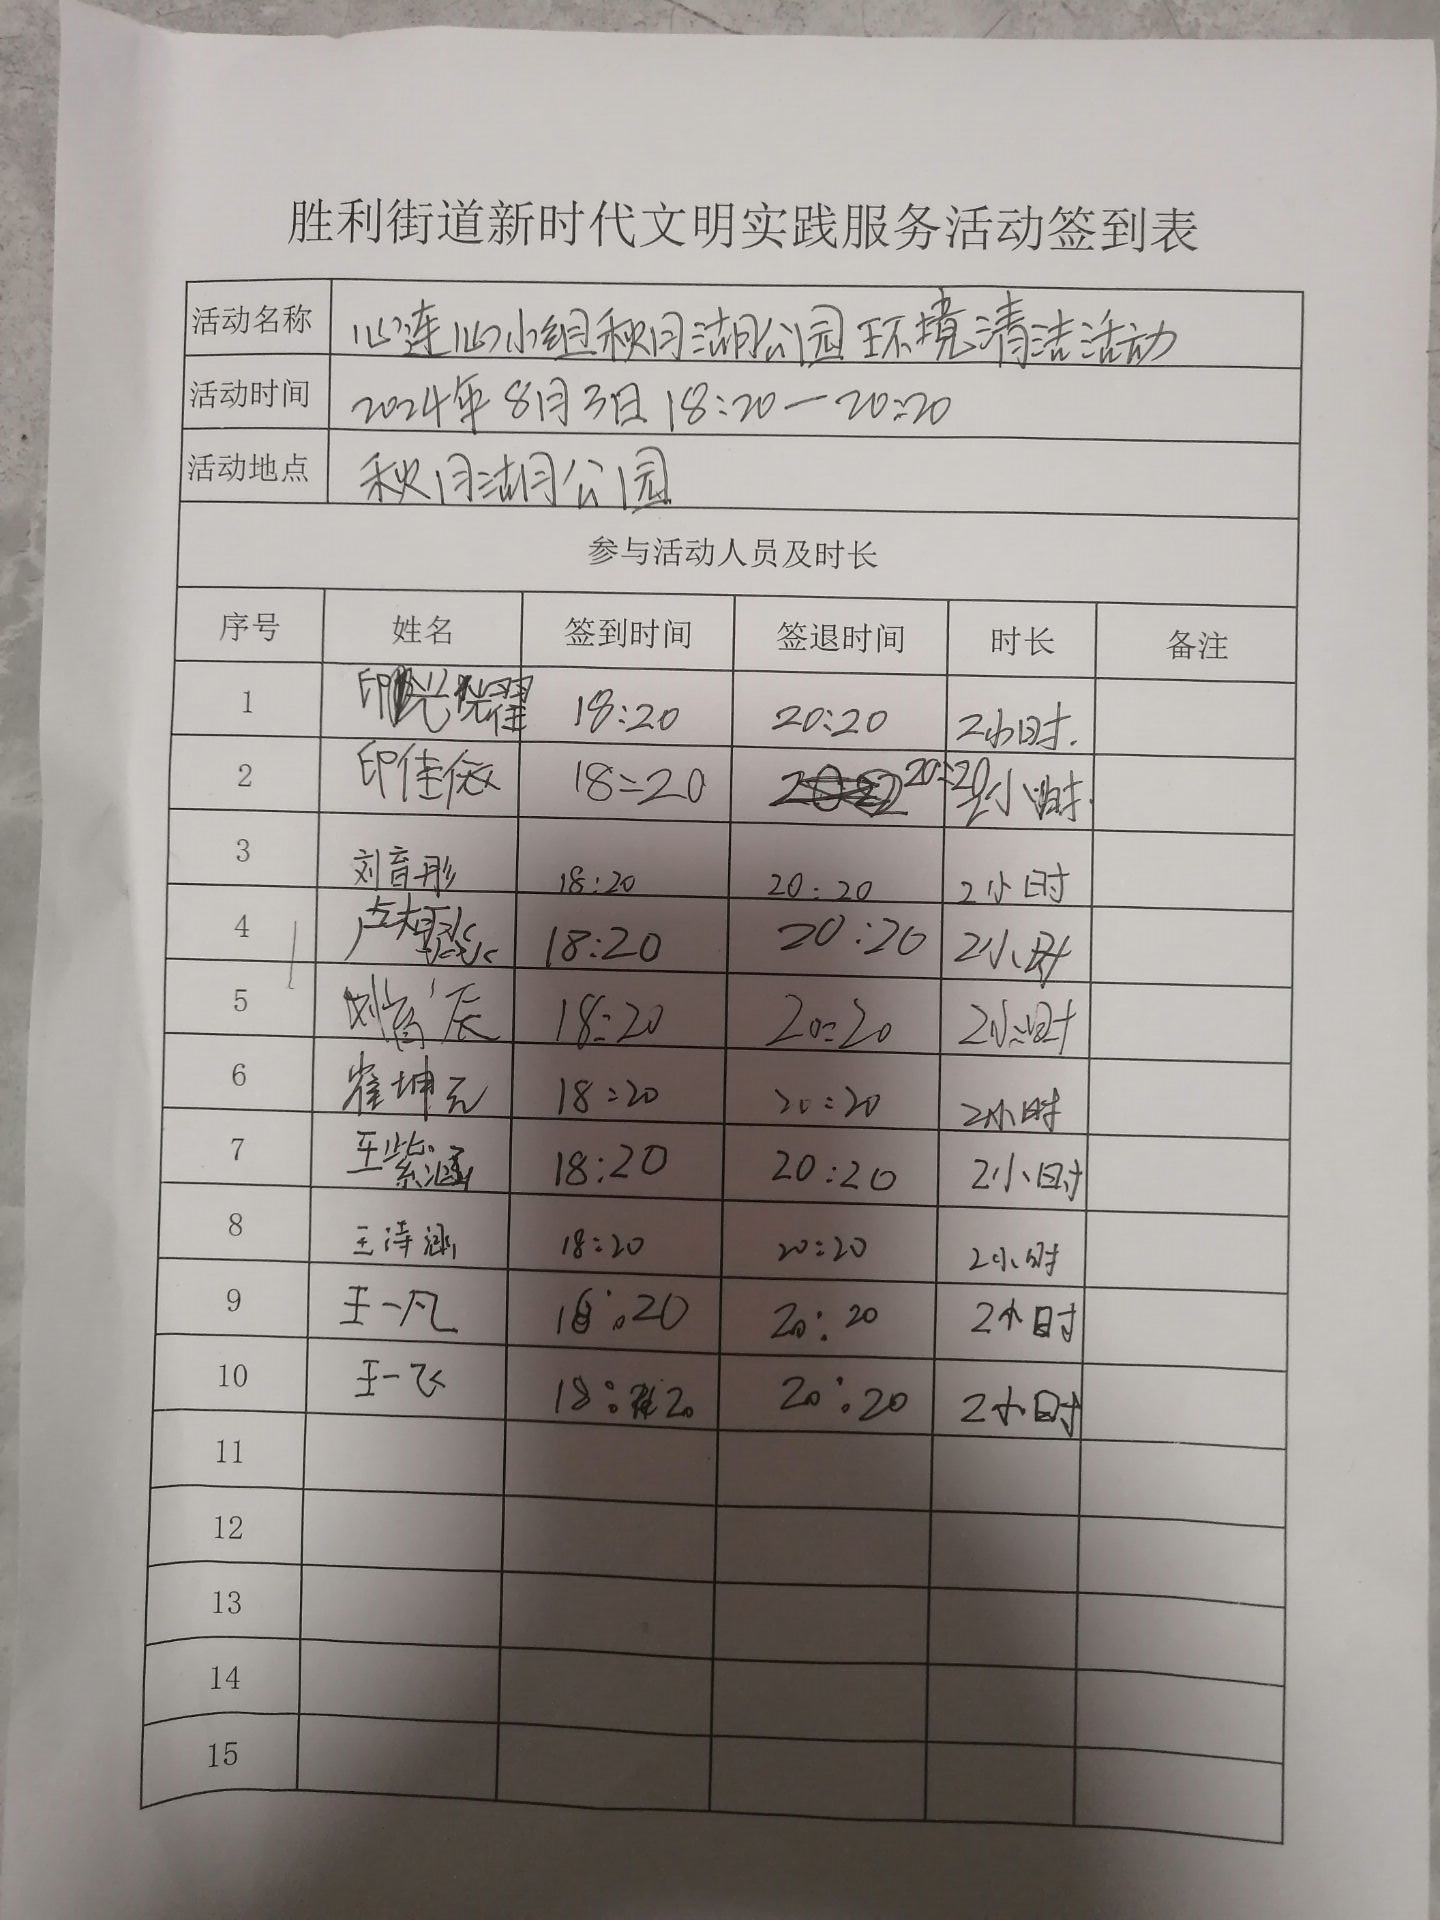 胜利街道新时代文明实践服务活动签到表
活动名称 心连心小组秋月湖公园环境清洁活动
活动时间 2024年8月3日18:20—20:20
活动地点 秋月湖公园
参与活动人员及时长
序号 姓名 签到时间 签退时间 时长 备注
1 印 18:20 20:20 2小时.
2 印佳依 18:20 20:20 2小时.
3 刘音彤 18:20 20:20 2小时
4 卢 18:20 20:20 2小时
5 刘 辰 18:20 20:20 2小时
6 崔坤元 18:20 20:20 2小时
7 王紫涵 18:20 20:20 2小时
8 王诗涵 18:20 20:20 2小时
9 王一凡 18:20 20:20 2小时
10 王一飞 18:20 20:20 2小时
11
12
13
14
15